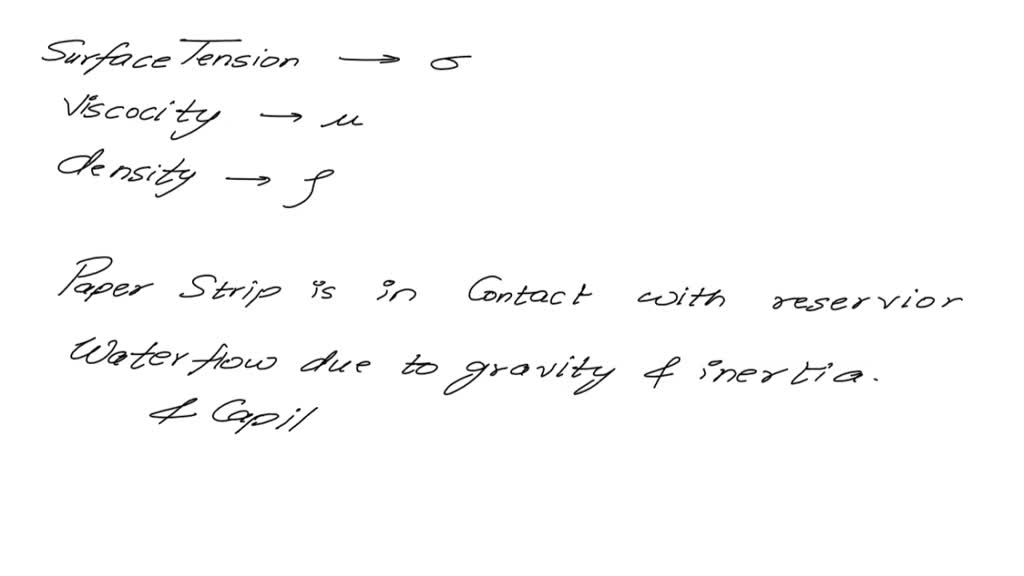 Surface Tension → σ
Viscocity → μ
density → ρ
Paper Strip is in Contact with reservior
Water flow due to gravity & inertia.
& Capil